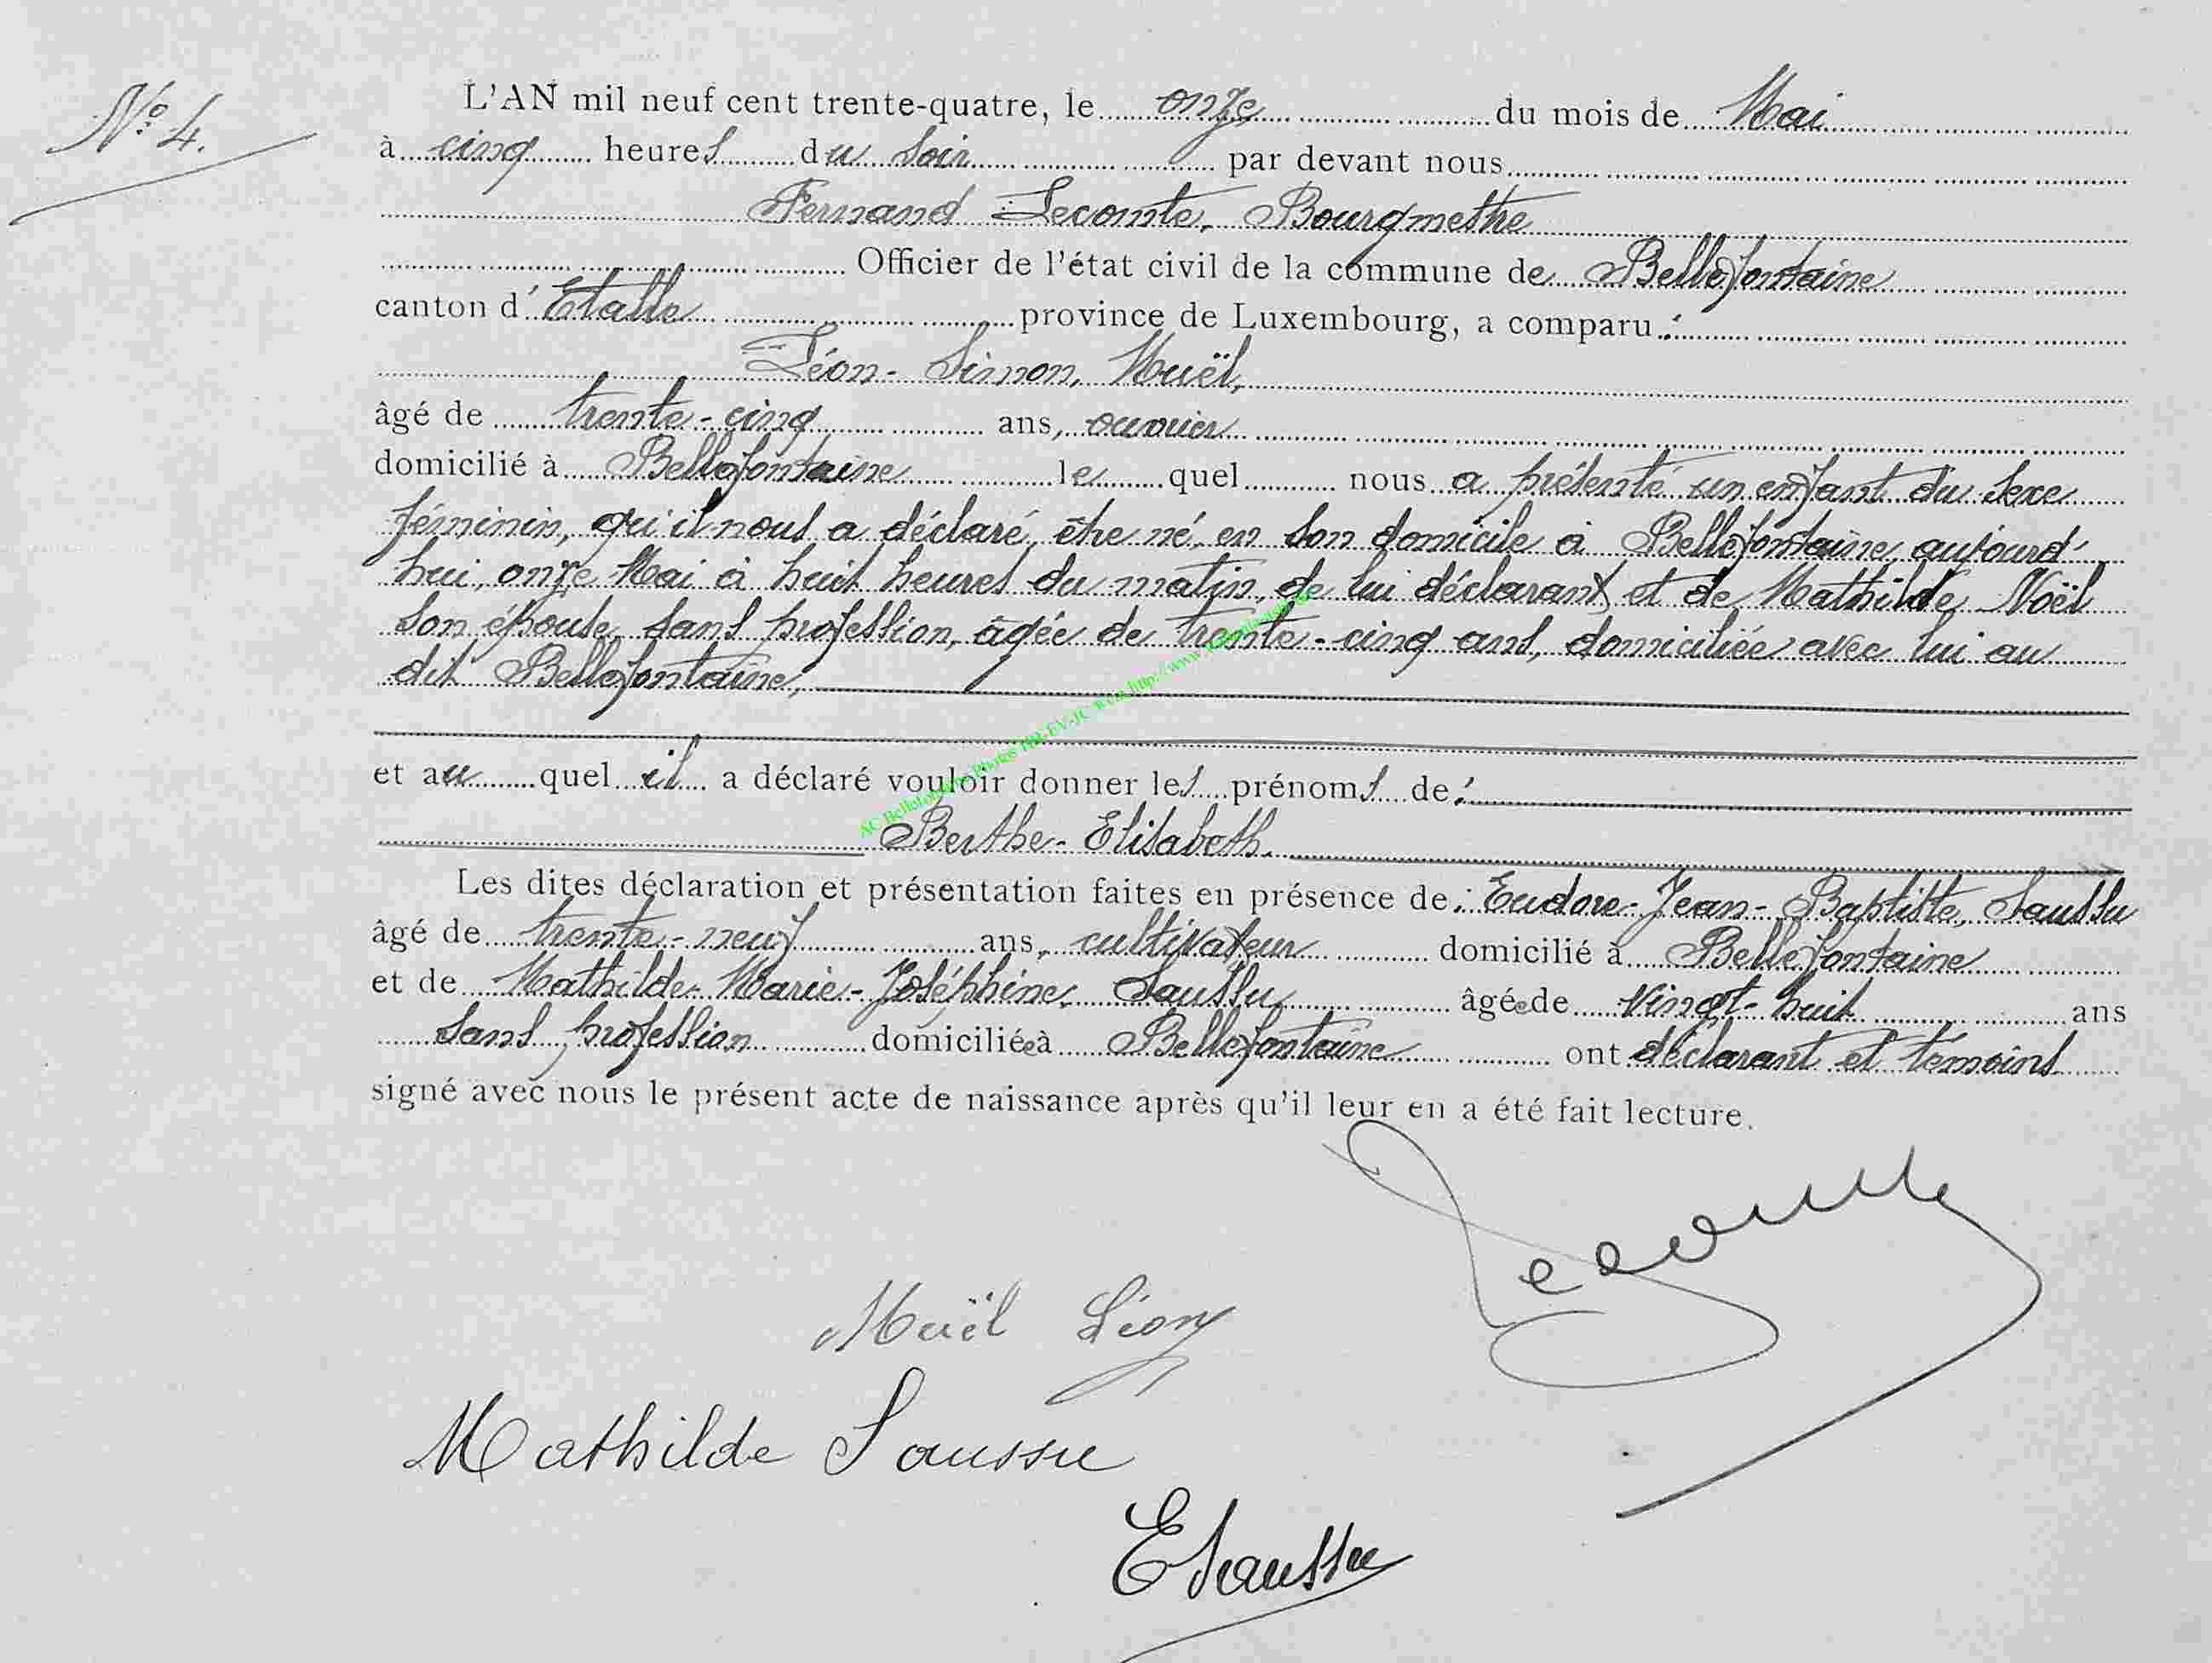 N° 4.
L'AN mil neuf cent trente-quatre, le onze du mois de Mai
à cinq heures du soir par devant nous
Fernand Lecomte, Bourgmestre
Officier de l'état civil de la commune de Bellefontaine
canton d'Etalle province de Luxembourg, a comparu :
Léon-Simon, Muël,
âgé de trente-cinq ans, ouvrier
domicilié à Bellefontaine le quel nous a présenté un enfant du sexe
féminin, qu'il nous a déclaré être né en son domicile à Bellefontaine, aujourd'
hui, onze Mai à huit heures du matin, de lui déclarant et de Mathilde Noël
son épouse, sans profession, âgée de trente-cinq ans, domiciliée avec lui au
dit Bellefontaine,
et au quel il a déclaré vouloir donner les prénoms de :
Berthe-Elisabeth.
Les dites déclaration et présentation faites en présence de : Eudore-Jean-Baptiste, Saussu
âgé de trente-neuf ans, cultivateur domicilié à Bellefontaine
et de Mathilde-Marie-Joséphine, Saussu âgée de vingt-huit ans
sans profession domiciliée à Bellefontaine ont déclarant et témoins
signé avec nous le présent acte de naissance après qu'il leur en a été fait lecture.
Lecomte
Muël Léon
Mathilde Saussu
E Saussu